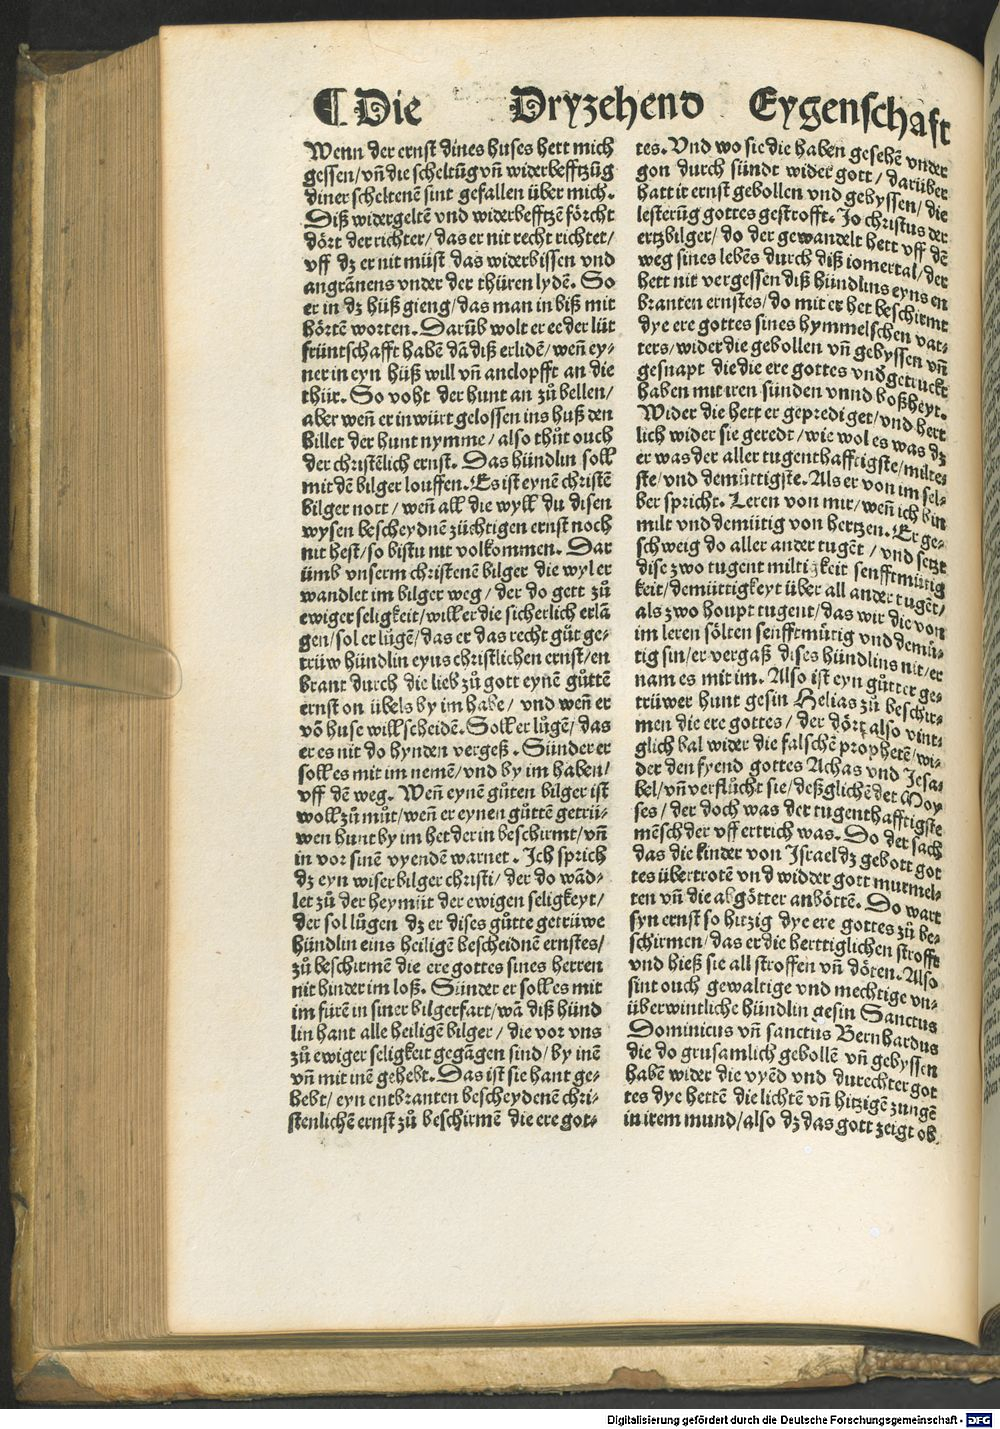 ¶ Die Dryzehend Eygenschafft
Wenn der ernst dines huses hett mich
gessen/ vñ die scheltũg vñ widerbefftzũg
diner scheltenẽ sint gefallen über mich.
Diß widergeltẽ vnd widerbefftzẽ förcht
dört der richter/ das er nit recht richtet/
vff dz er nit müst das widerbissen vnd
angrãnens vnder der thüren lydẽ. So
er in dz hüß gieng/ das man in biß mit
hörtẽ worten. Darũb wolt er ee der lüt
früntschafft habẽ dã diß erlidẽ/ weñ ey-
ner in eyn hüß will vñ anclopfft an die
thür. So voht der hunt an zů bellen/
aber weñ er inwürt gelossen ins huß den
billet der hunt nymme/ also thůt ouch
der christẽlich ernst. Das hündlin soll
mit dẽ bilger louffen. Es ist eynẽ christẽ
bilger nott/ weñ all die wyll du disen
wysen bescheydnẽ züchtigen ernst noch
nit hest/ so bistu nit volkommen. Dar
ümb vnserm christenẽ bilger die wyl er
wandlet im bilger weg/ der do gett zů
ewiger seligkeit/ will er die sicherlich erlã
gen/ sol er lůgẽ/ das er das recht gůt ge-
trüw hündlin eyns christlichen ernst/ en
brant durch die lieb zů gott eynẽ gůttẽ
ernst on übels by im habe/ vnd weñ er
võ huse will scheidẽ. Soll er lůgẽ/ das
er es nit do hynden vergeß. Sünder er
soll es mit im nemẽ/ vnd by im haben/
vff dẽ weg. Weñ eynẽ gůten bilger ist
woll zů můt/ weñ er eynen gůttẽ getrü-
wen hunt by im het der in beschirmt/ vñ
in vor sinẽ vyendẽ warnet. Ich sprich
dz eyn wiser bilger christi/ der do wãd-
let zů der heymüt der ewigen seligkeyt/
der sol lůgen dz er dises gůtte getrüwe
hündlin eins heiligẽ bescheidnẽ ernstes/
zů beschirmẽ die ere gottes sines herren
nit hinder im loß. Sünder er soll es mit
im fürẽ in siner bilgerfart/ wã diß hünd
lin hant alle heiligẽ bilger/ die vor vns
zů ewiger seligkeit gegãgen sind/ by inẽ
vñ mit inẽ gehebt. Das ist sie hant ge-
hebt/ eyn entbranten bescheydenẽ chri-
stenlichẽ ernst zů beschirmẽ die ere got-
tes. Vnd wo sie die haben gesehẽ vnder
gon durch sündt wider gott/ darüber
hatt ir ernst gebollen vnd gebyssen/ die
lesterũg gottes gestrofft. Jo christus der
ertzbilger/ do der gewandelt hett vff dẽ
weg sines lebẽs durch diß iomertal/ der
hett nit vergessen diß hündlins eyns en
branten ernstes/ do mit er het beschirmt
dye ere gottes sines hymmelschen vat-
ters/ wider die gebollen vñ gebyssen vñ
gesnapt die die ere gottes vndgetruckt
haben mit iren sünden vnnd boßheyt.
Wider die hett er geprediget/ vnd hert
lich wider sie geredt/ wie wol es was dz
er was der aller tugenthafftigste/ miltes
ste/ vnd demüttigste. Als er von im sel-
ber spricht. Leren von mir/ weñ ich bin
milt vnd demütig von hertzen. Er ge-
schweig do aller ander tugẽt/ vnd setzt
dise zwo tugent miltigkeit senfftmütig
keit/ demüttigkeyt über all ander tugẽt/
als zwo houpt tugent/ das wir die von
im leren sölten senfftmütig vnd demü-
tig sin/ er vergaß dises hündlins nit/ er
nam es mit im. Also ist eyn gůtter ge-
trüwer hunt gesin Helias zů beschir-
men die ere gottes/ der dört also vint-
glich bal wider die falschẽ prophetẽ/ wi-
der den fyend gottes Achas vnd Jesa-
bel/ vñ verflůcht sie/ deßglichẽ det Moy
ses/ der doch was der tugenthafftigste
mẽsch der vff ertrich was. Do der sach
das die kinder von Israel dz gebott got
tes übertrotẽ vnd widder gott murmel-
ten vñ die abgötter anböttẽ. Do wart
syn ernst so hitzig dye ere gottes zů be-
schirmen/ das er die herttiglichen strofft
vnd hieß sie all stroffen vñ döten. Also
sint ouch gewaltige vnd mechtige vn-
überwintliche hündlin gesin Sanctus
Dominicus vñ sanctus Bernhardus
die do grusamlich gebollẽ vñ gebyssen
habẽ wider die vyẽd vnd durechter got
tes dye hettẽ die lichtẽ vñ hitzigẽ zungẽ
in irem mund/ also dz das gott zeigt ob
Digitalisierung gefördert durch die Deutsche Forschungsgemeinschaft - DFG